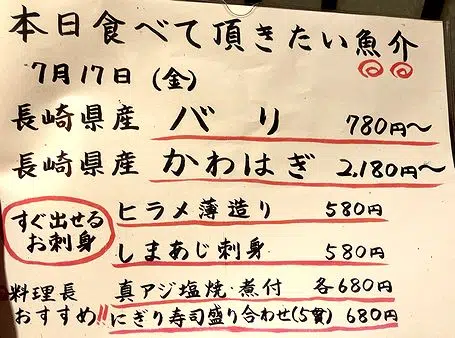 本日食べて頂きたい魚介
7月17日(金)
長崎県産 バリ 780円〜
長崎県産 かわはぎ 2,180円〜
すぐ出せる
お刺身
ヒラメ薄造り 580円
しまあじ刺身 580円
料理長
おすすめ!!
真アジ塩焼・煮付 各680円
にぎり寿司盛り合わせ(5貫) 680円